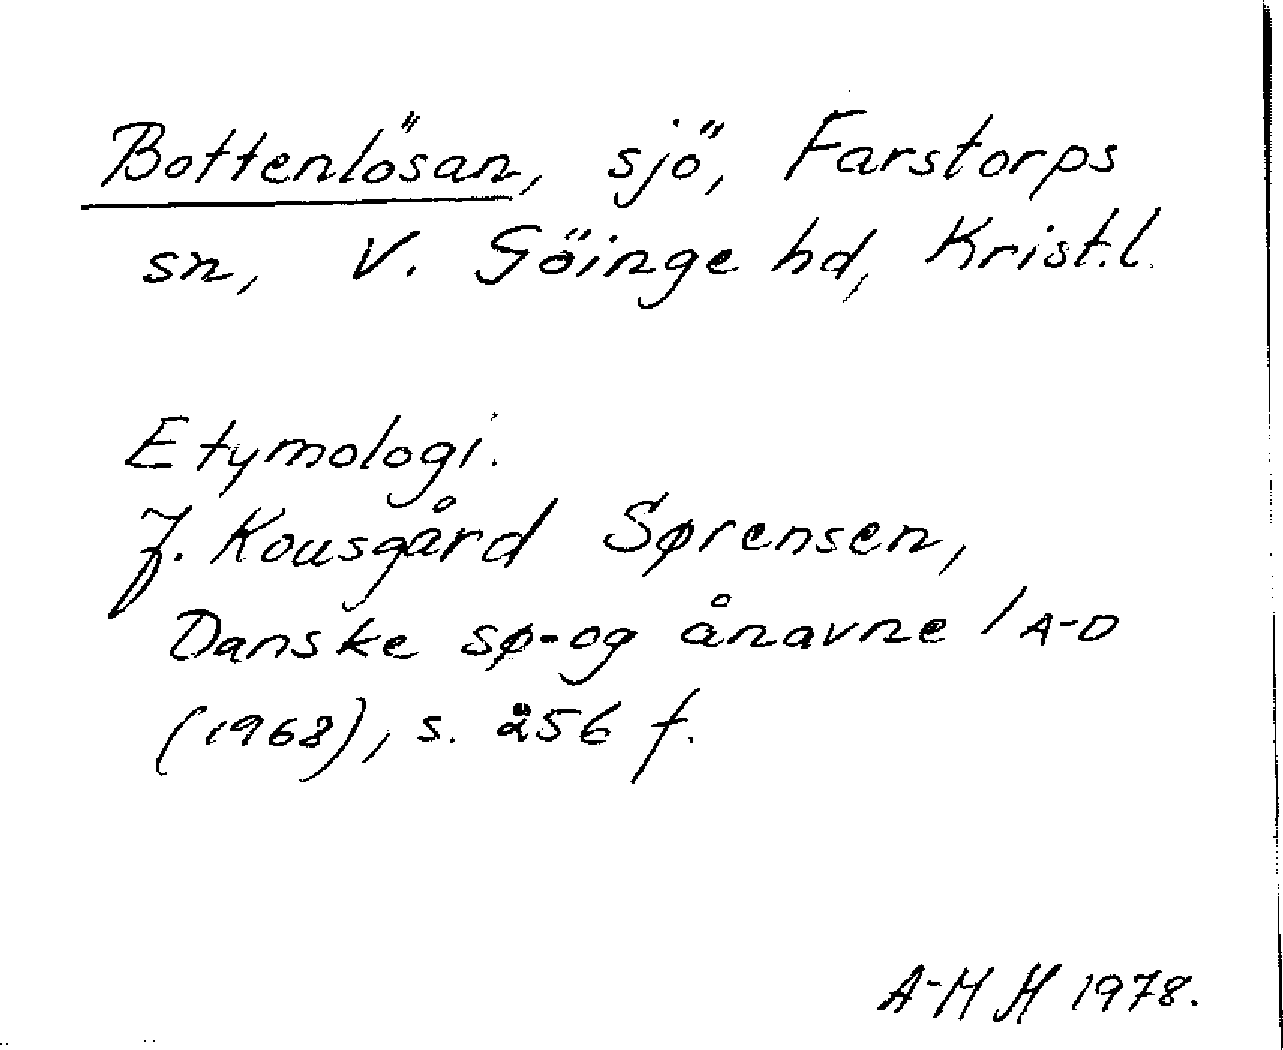 Bottenlösan, sjö, Farstorps
sn, V. Göinge hd, Krist.l.
Etymologi.
J. Kousgård Sørensen,
Danske sø- og ånavne I A-D
(1968), s. 256 f.
A-M H 1978.